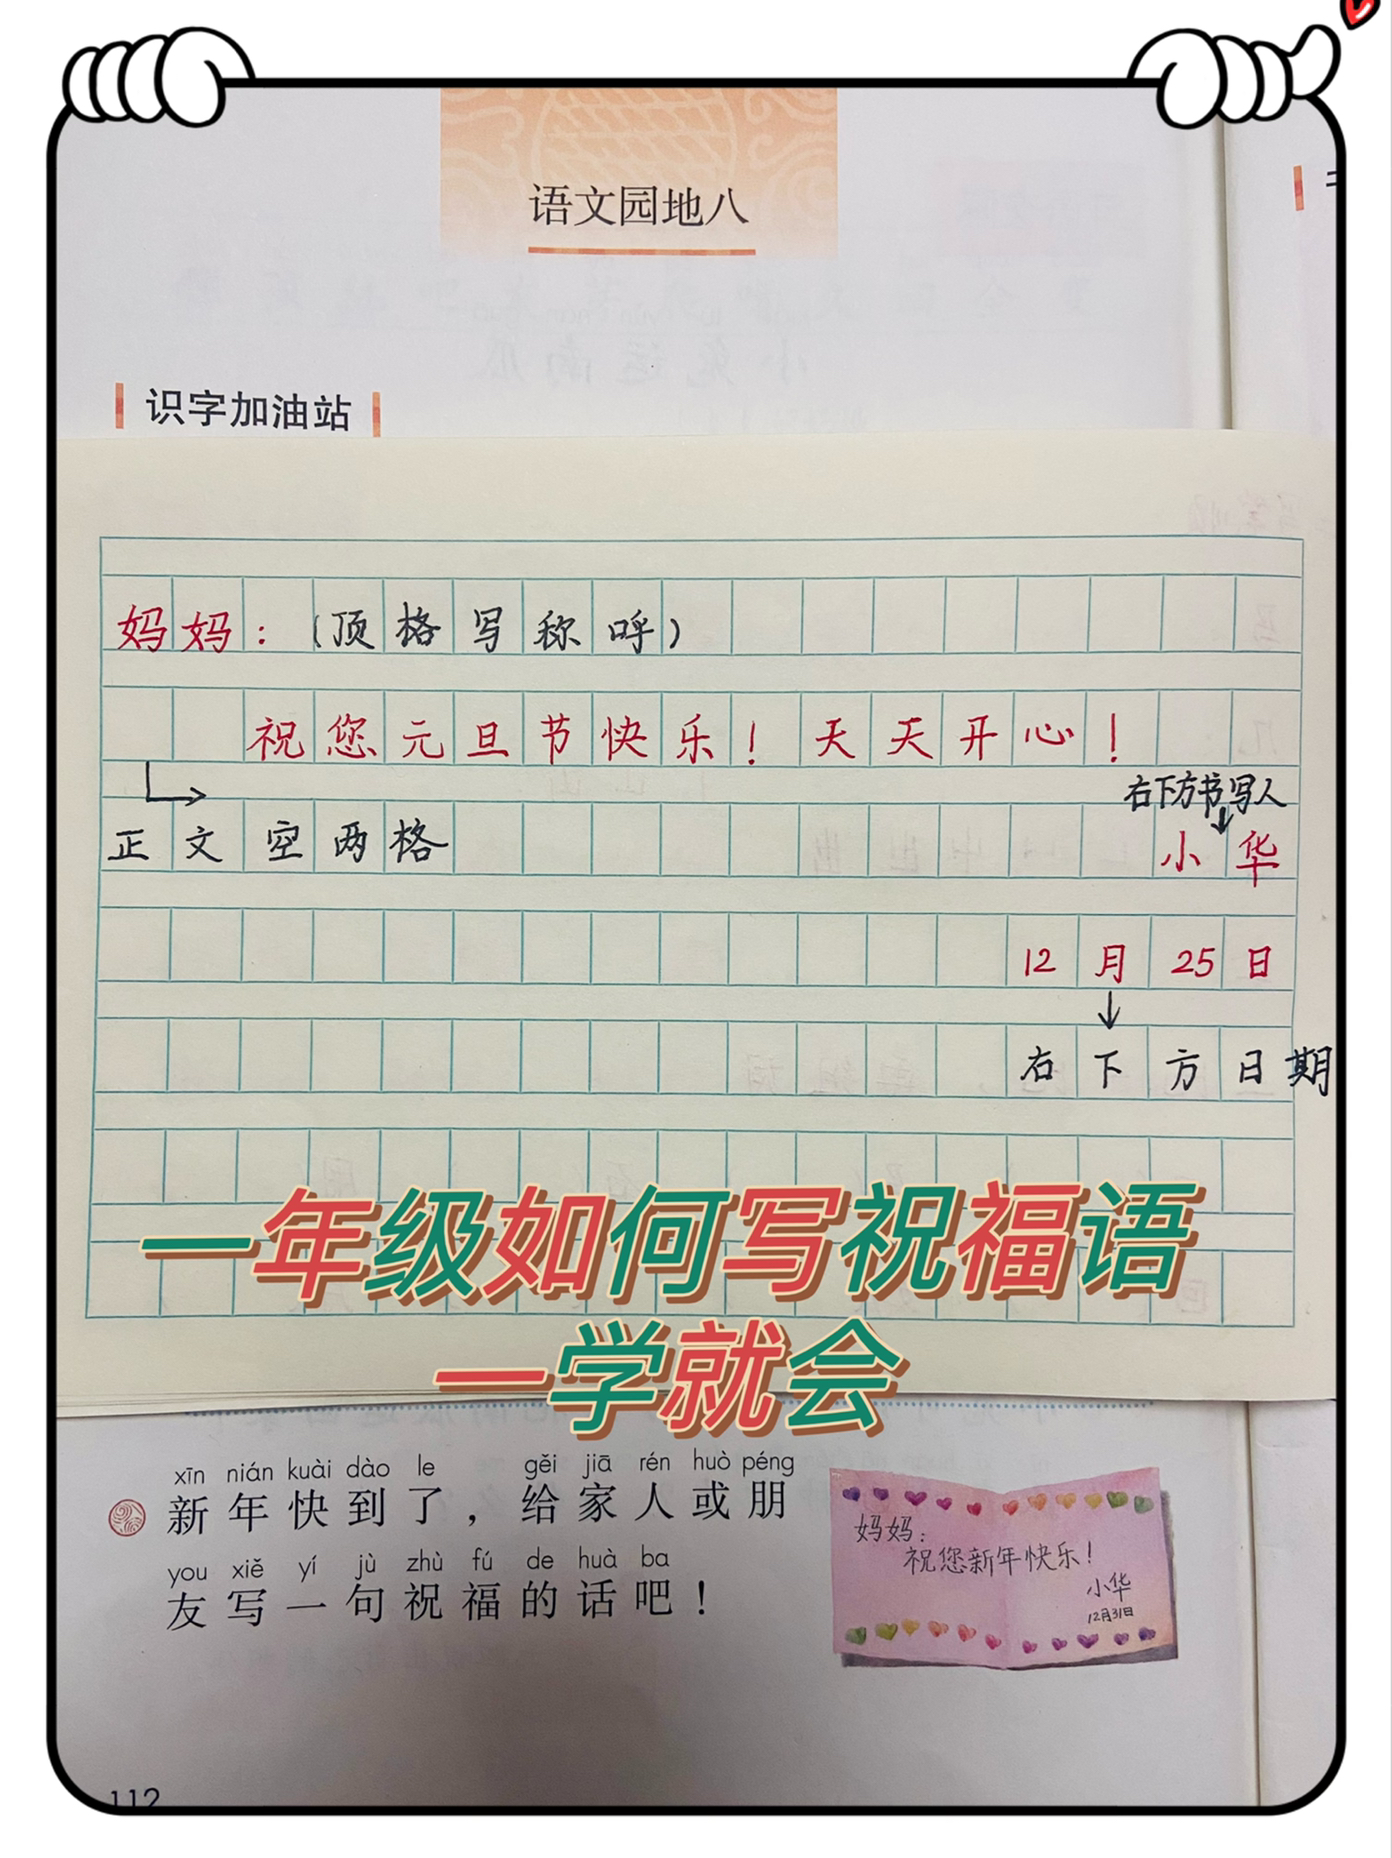 语文园地八
识字加油站
妈妈：（顶格写称呼）
祝您元旦节快乐！天天开心！
右下方书写人
正文空两格
小华
12月25日
右下方日期
一年级如何写祝福语
一学就会
xīn nián kuài dào le gěi jiā rén huò péng
新年快到了，给家人或朋
you xiě yí jù zhù fú de huà ba
友写一句祝福的话吧！
妈妈：
祝您新年快乐！
小华
12月31日
112